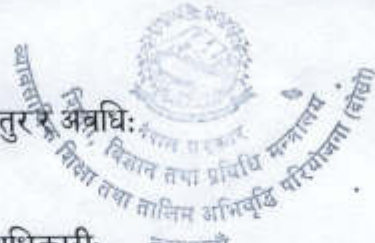 तुर र अवधिः
नेपाल सरकार
शिक्षा, विज्ञान तथा प्रविधि मन्त्रालय
व्यावसायिक शिक्षा तथा तालिम अभिवृद्धि परियोजना (दोस्रो)